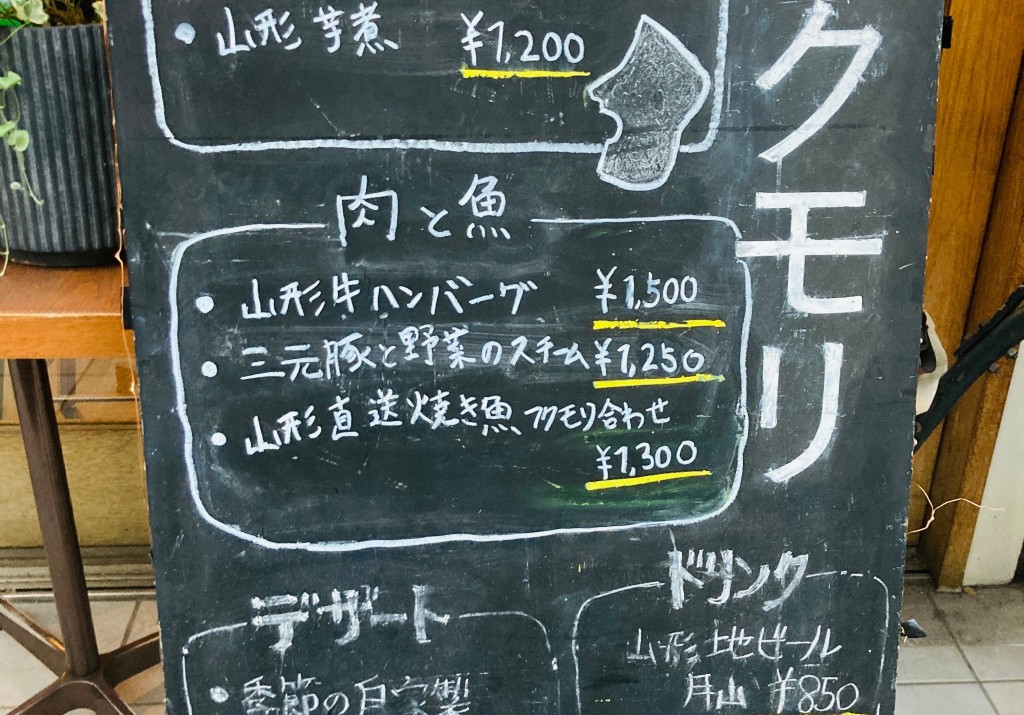 クモリ
・山形芋煮 ¥1,200
肉と魚
・山形牛ハンバーグ ¥1,500
・三元豚と野菜のスチーム ¥1,250
・山形直送焼き魚 フクモリ合わせ
¥1,300
デザート
・季節の自家製
ドリンク
山形地ビール
月山 ¥850